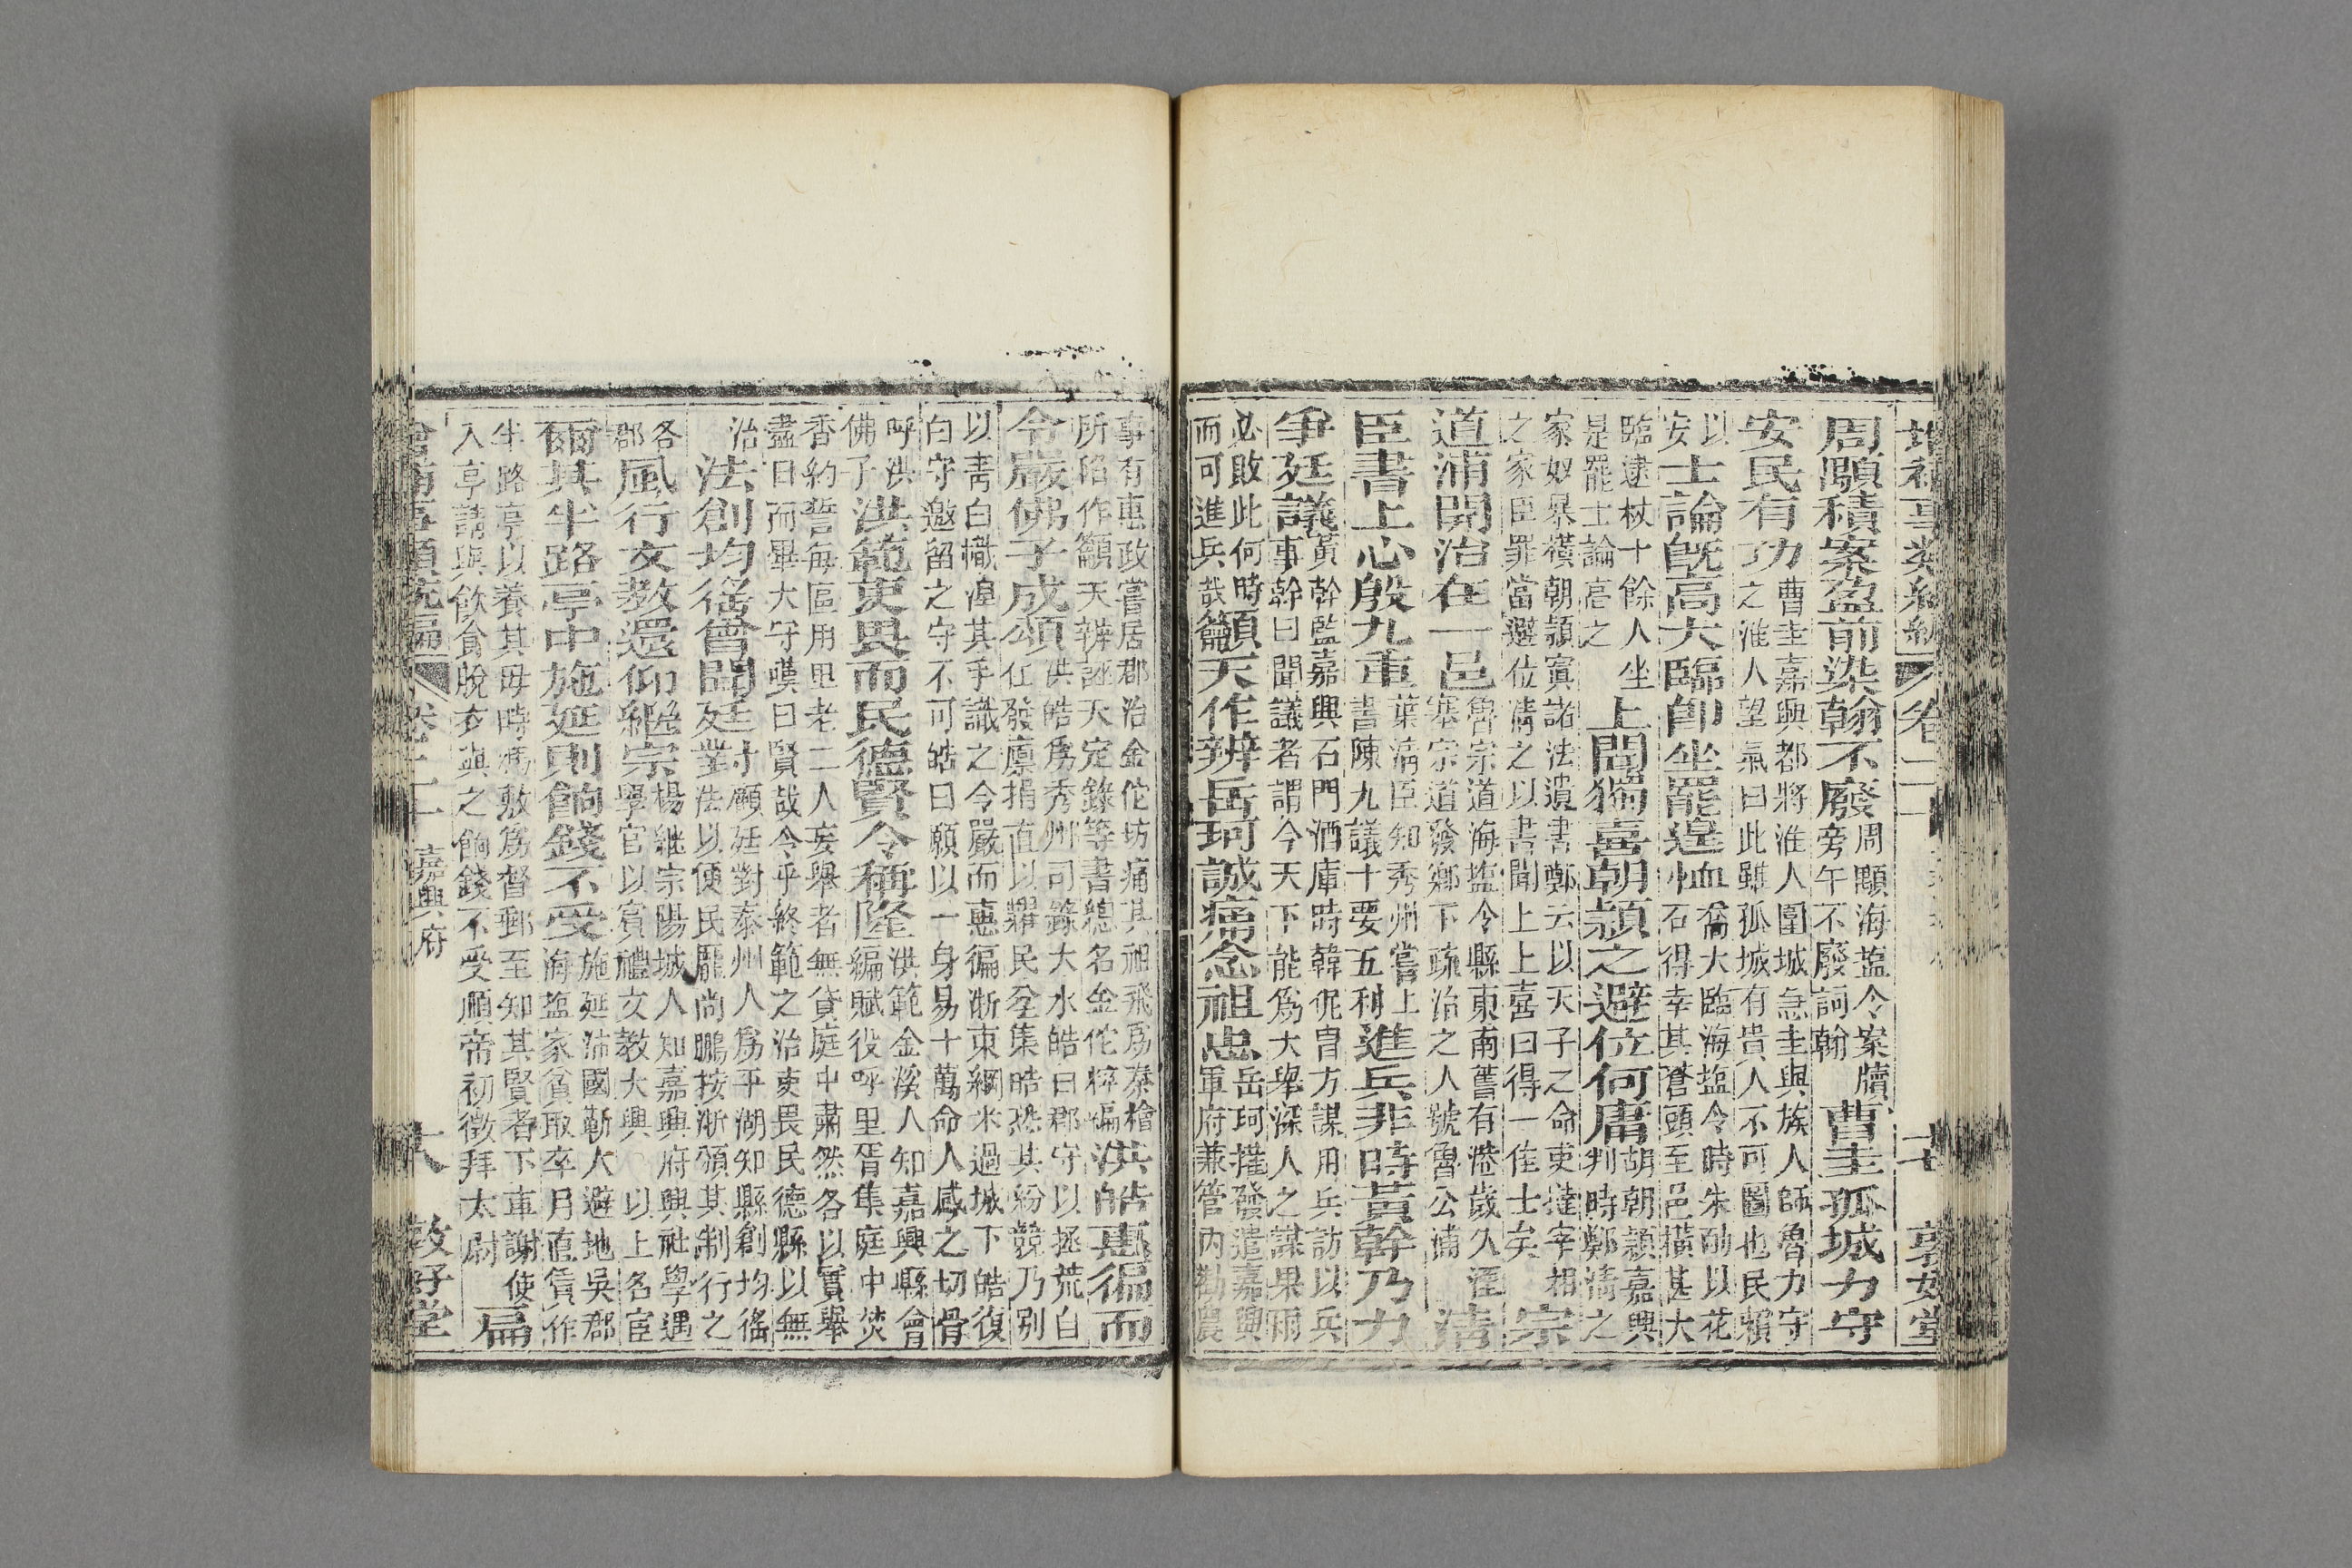 周顒積案盈前染翰不廢周顒海塩令案牘旁午不廢詞翰曹圭孤城力守
安民有功曹圭嘉興都將淮人圍城急圭與族人師魯力守之淮人望氣曰此雖孤城有貴人不可圖也民賴以安
士論旣高大臨卽坐罷遑恤喬大臨海塩令時朱勔以花石得幸其蒼頭至邑橫甚大臨逮杖十餘人坐是罷士論高之
上聞獨喜朝頴之避位何庸胡朝頴嘉興判時鄭淸之家奴暴橫朝頴寘諸法遺書鄭云以天子之命吏撻宰相之家臣罪當避位淸之以書聞上上喜曰得一佳士矣宗
道浦開治在一邑魯宗道海塩令縣東南舊有港歲久湮塞宗道發鄉下疏治之人號魯公浦淸
臣書上心殷九重葉淸臣知秀州嘗上書陳九議十要五利進兵非時黃幹乃力
爭廷議黃幹監嘉興石門酒庫時韓侂冑方謀用兵訪以兵事幹曰聞議者謂今天下能爲大舉深人之謀果爾必敗此何時而可進兵哉
籲天作辨岳珂誠痛念祖忠岳珂權發遣嘉興軍府兼管內勸農
事有惠政嘗居郡治金佗坊痛其祖飛爲秦檜所陷作籲天辨誣天定錄等書總名金佗粹編洪皓惠徧而
令嚴佛子成頌洪皓爲秀州司錄大水皓曰郡守以拯荒自任發廩捐直以糶民坌集皓恐其紛競乃別
以靑白幟湼其手識之令嚴而惠徧浙東綱米過城下皓復白守邀留之守不可皓曰願以一身易十萬命人感之切骨
呼洪佛子洪範吏畏而民德賢令稱隆洪範金溪人知嘉興縣會編賦役呼里胥集庭中焚
香約誓每區用里老二人妄舉者無貸庭中肅然各以實舉盡日而畢大守嘆曰賢哉令乎終範之治吏畏民德縣以無
治法創均徭曾聞廷對顧廷對泰州人爲平湖知縣創均徭法以便民龎尚鵬按浙頒其制行之
各郡風行文教還仰繼宗楊繼宗陽城人知嘉興府興社學遇學官以賓禮文教大興以上名宦
爾其半路亭中施延則餉錢不受施延沛國蘄人避地吳郡海塩家貧取卒月直賃作
半路亭以養其母時馮敷爲督郵至知其賢者下車謝使入亭請與飮食脫衣與之餉錢不受順帝初徵拜太尉扁
卷二十 嘉興府
敦好堂